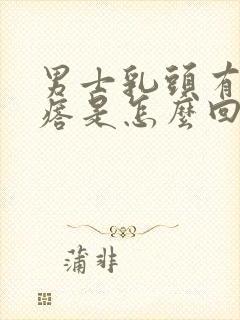 男士乳頭有
痞是怎麼回
蒲非